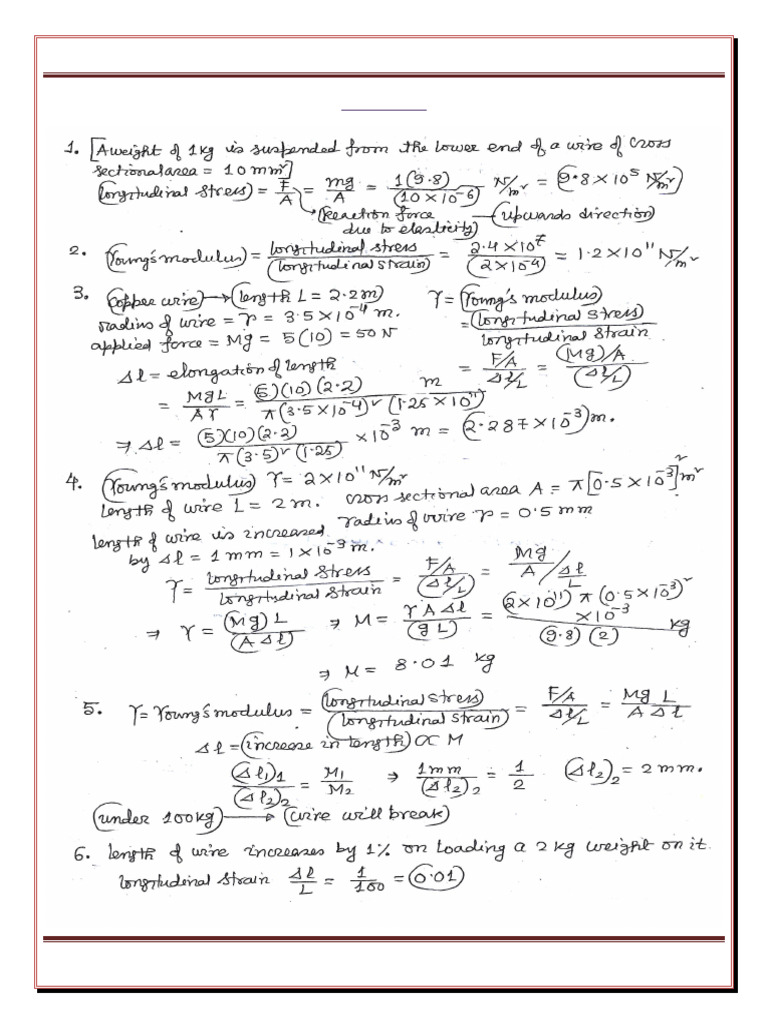 1. [A weight of 1 kg is suspended from the lower end of a wire of cross
sectional area = 10 mm²]
(longitudinal stress) = F/A = mg/A = 1(9.8)/(10×10⁻⁶) N/m² = (9.8×10⁵ N/m²)
(Reaction force due to elasticity) — (upwards direction)
2. (Young's modulus) = longitudinal stress/(longitudinal strain) = 2.4×10⁷/(2×10⁻⁴) = 1.2×10¹¹ N/m²
3. (copper wire) → (length L = 2.2 m) Y = (Young's modulus)
radius of wire = r = 3.5×10⁻⁴ m. = (longitudinal stress)/longitudinal strain
applied force = Mg = 5(10) = 50 N
Δl = elongation of length = (F/A)/(Δl/L) = (Mg)/A/(Δl/L)
= MgL/AY = (5)(10)(2.2)/π(3.5×10⁻⁴)²(1.25×10¹¹) m
⇒ Δl = (5)(10)(2.2)/π(3.5)²(1.25) ×10⁻³ m = (2.287×10⁻³) m.
4. (Young's modulus) Y = 2×10¹¹ N/m²
length of wire L = 2 m. cross sectional area A = π[0.5×10⁻³]² m²
length of wire is increased radius of wire r = 0.5 mm
by Δl = 1 mm = 1×10⁻³ m.
Y = longitudinal stress/longitudinal strain = (F/A)/(Δl/L) = Mg/A / Δl/L
⇒ Y = (Mg)L/(AΔl) ⇒ M = YAΔl/(gL) = (2×10¹¹) π(0.5×10⁻³)² ×10⁻³/(9.8)(2) kg
⇒ M = 8.01 kg
5. Y = Young's modulus = (longitudinal stress)/(longitudinal strain) = (F/A)/(Δl/L) = MgL/AΔl
Δl = (increase in length) ∝ M
(Δl₁)₁/(Δl₂)₂ = M₁/M₂ ⇒ 1mm/(Δl₂)₂ = 1/2 (Δl₂)₂ = 2 mm.
(under 100kg) → (wire will break)
6. length of wire increases by 1% on loading a 2 kg weight on it.
longitudinal strain Δl/L = 1/100 = (0.01)